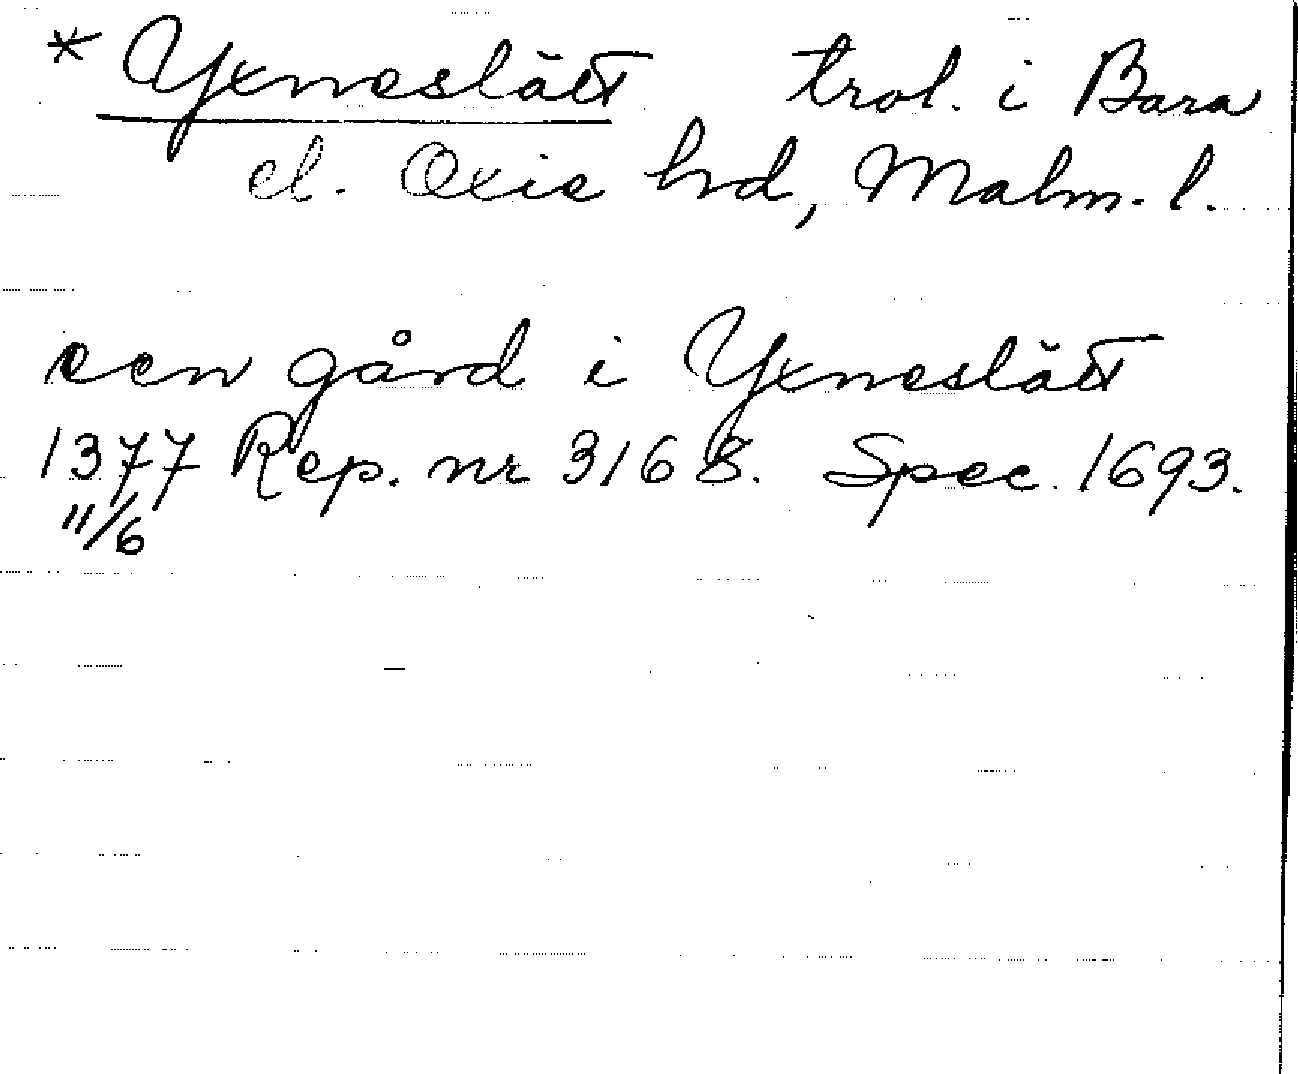 * Yxneslätt trol. i Bara
el. Oxie hrd, Malm. l.
een gård i Yxneslätt
1377 Rep. nr 3168. Spec. 1693.
11/6